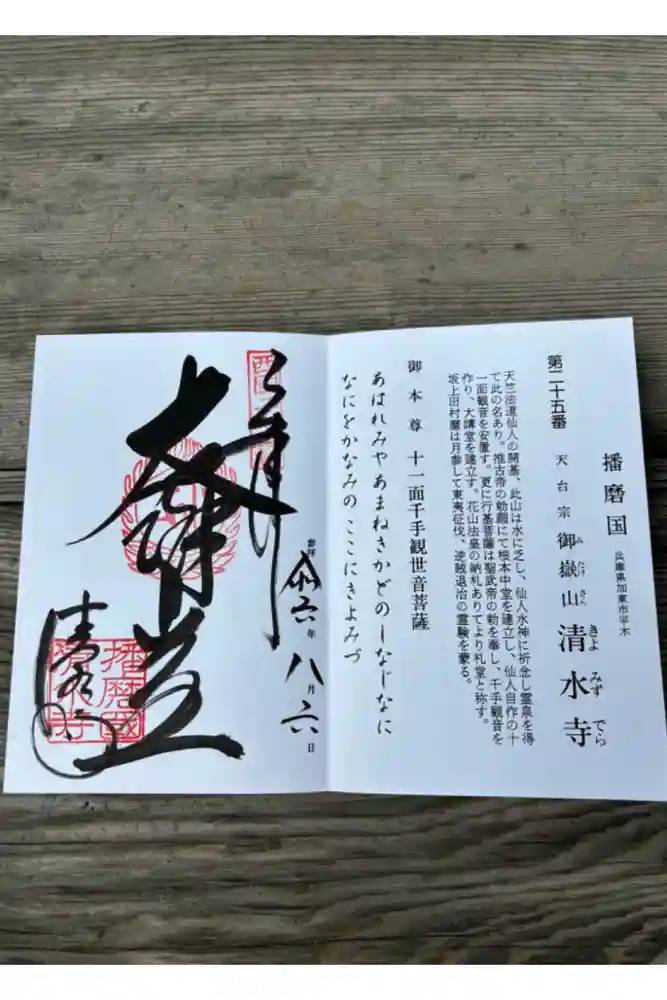 播磨国 兵庫県加東市平木
第二十五番 天台宗 御嶽山 清水寺
み たけ さん きよ みず でら
天竺法道仙人の開基、此山は水に乏し、仙人水神に祈念し霊泉を得
て此の名あり。推古帝の勅願にて根本中堂を建立し、仙人自作の十
一面観音を安置す。更に行基菩薩は聖武帝の勅を奉し、千手観音を
作り、大講堂を建立す。花山法皇の納札ありてより札堂と称す。
坂上田村麿は月参して東夷征伐、逆賊退治の霊験を蒙る。
御本尊 十一面千手観世音菩薩
あはれみやあまねきかどのしなじなに
なにをかなみの ここにきよみづ
奉拝
参拝 令六年八月六日
大講堂
清水寺
播磨國
清水寺